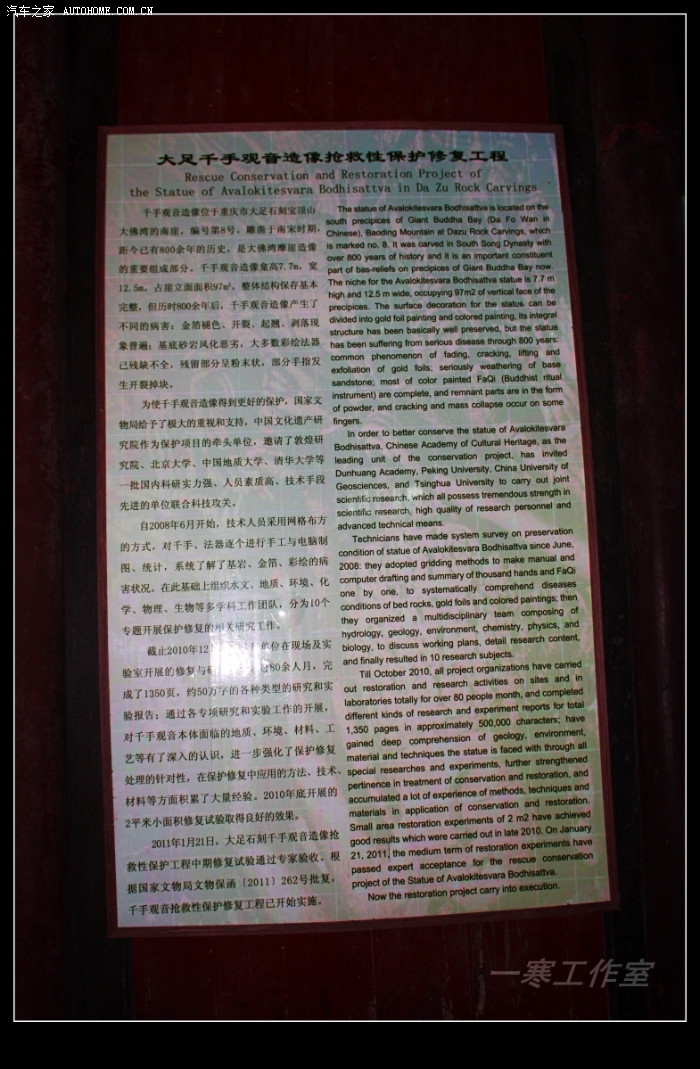 汽车之家 AUTOHOME.COM.CN
大足千手观音造像抢救性保护修复工程
Rescue Conservation and Restoration Project of
the Statue of Avalokitesvara Bodhisattva in Da Zu Rock Carvings
千手观音造像位于重庆市大足石刻宝顶山
大佛湾的南崖，编号第8号，雕凿于南宋时期，
距今已有800余年的历史，是大佛湾摩崖造像
的重要组成部分。千手观音造像龛高7.7m，宽
12.5m，占崖立面面积97㎡，整体结构保存基本
完整，但历时800余年后，千手观音造像产生了
不同的病害：金箔褪色、开裂、起翘、剥落现
象普遍；基底砂岩风化恶劣，大多数彩绘法器
已残缺不全，残留部分呈粉末状，部分手指发
生开裂掉块。
为使千手观音造像得到更好的保护，国家文
物局给予了极大的重视和支持，中国文化遗产研
究院作为保护项目的牵头单位，邀请了敦煌研
究院、北京大学、中国地质大学、清华大学等
一批国内科研实力强、人员素质高、技术手段
先进的单位联合科技攻关。
自2008年6月开始，技术人员采用网格布方
的方式，对千手、法器逐个进行手工与电脑制
图、统计，系统了解了基岩、金箔、彩绘的病
害状况。在此基础上组织水文、地质、环境、化
学、物理、生物等多学科工作团队，分为10个
专题开展保护修复的相关研究工作。
截止2010年12 单位在现场及实
验室开展的修复与研 80余人月，完
成了1350页，约50万字的各种类型的研究和实
验报告；通过各专项研究和实验工作的开展，
对千手观音本体面临的地质、环境、材料、工
艺等有了深入的认识，进一步强化了保护修复
处理的针对性，在保护修复中应用的方法、技术、
材料等方面积累了大量经验。2010年底开展的
2平米小面积修复试验取得良好的效果。
2011年1月21日，大足石刻千手观音造像抢
救性保护工程中期修复试验通过专家验收。根
据国家文物局文物保函〔2011〕262号批复，
千手观音抢救性保护修复工程已开始实施。
The statue of Avalokitesvara Bodhisattva is located on the
south precipices of Giant Buddha Bay (Da Fo Wan in
Chinese), Baoding Mountain at Dazu Rock Carvings, which
is marked no. 8. It was carved in South Song Dynasty with
over 800 years of history and it is an important constituent
part of bas-reliefs on precipices of Giant Buddha Bay now.
The niche for the Avalokitesvara Bodhisattva statue is 7.7 m
high and 12.5 m wide, occupying 97m2 of vertical face of the
precipices. The surface decoration for the status can be
divided into gold foil painting and colored painting. Its integral
structure has been basically well preserved, but the status
has been suffering from serious disease through 800 years:
common phenomenon of fading, cracking, lifting and
exfoliation of gold foils; seriously weathering of base
sandstone; most of color painted FaQi (Buddhist ritual
instrument) are complete, and remnant parts are in the form
of powder, and cracking and mass collapse occur on some
fingers.
In order to better conserve the statue of Avalokitesvara
Bodhisattva, Chinese Academy of Cultural Heritage, as the
leading unit of the conservation project, has invited
Dunhuang Academy, Peking University, China University of
Geosciences, and Tsinghua University to carry out joint
scientific research, which all possess tremendous strength in
scientific research, high quality of research personnel and
advanced technical means.
Technicians have made system survey on preservation
condition of statue of Avalokitesvara Bodhisattva since June,
2008: they adopted gridding methods to make manual and
computer drafting and summary of thousand hands and FaQi
one by one, to systematically comprehend diseases
conditions of bed rocks, gold foils and colored paintings; then,
they organized a multidisciplinary team composing of
hydrology, geology, environment, chemistry, physics, and
biology, to discuss working plans, detail research content,
and finally resulted in 10 research subjects.
Till October 2010, all project organizations have carried
out restoration and research activities on sites and in
laboratories totally for over 80 people month, and completed
different kinds of research and experiment reports for total
1,350 pages in approximately 500,000 characters; have
gained deep comprehension of geology, environment,
material and techniques the statue is faced with through all
special researches and experiments, further strengthened
pertinence in treatment of conservation and restoration, and
accumulated a lot of experience of methods, techniques and
materials in application of conservation and restoration.
Small area restoration experiments of 2 m2 have achieved
good results which were carried out in late 2010. On January
21, 2011, the medium term of restoration experiments have
passed expert acceptance for the rescue conservation
project of the Statue of Avalokitesvara Bodhisattva.
Now the restoration project carry into execution.
一寒工作室